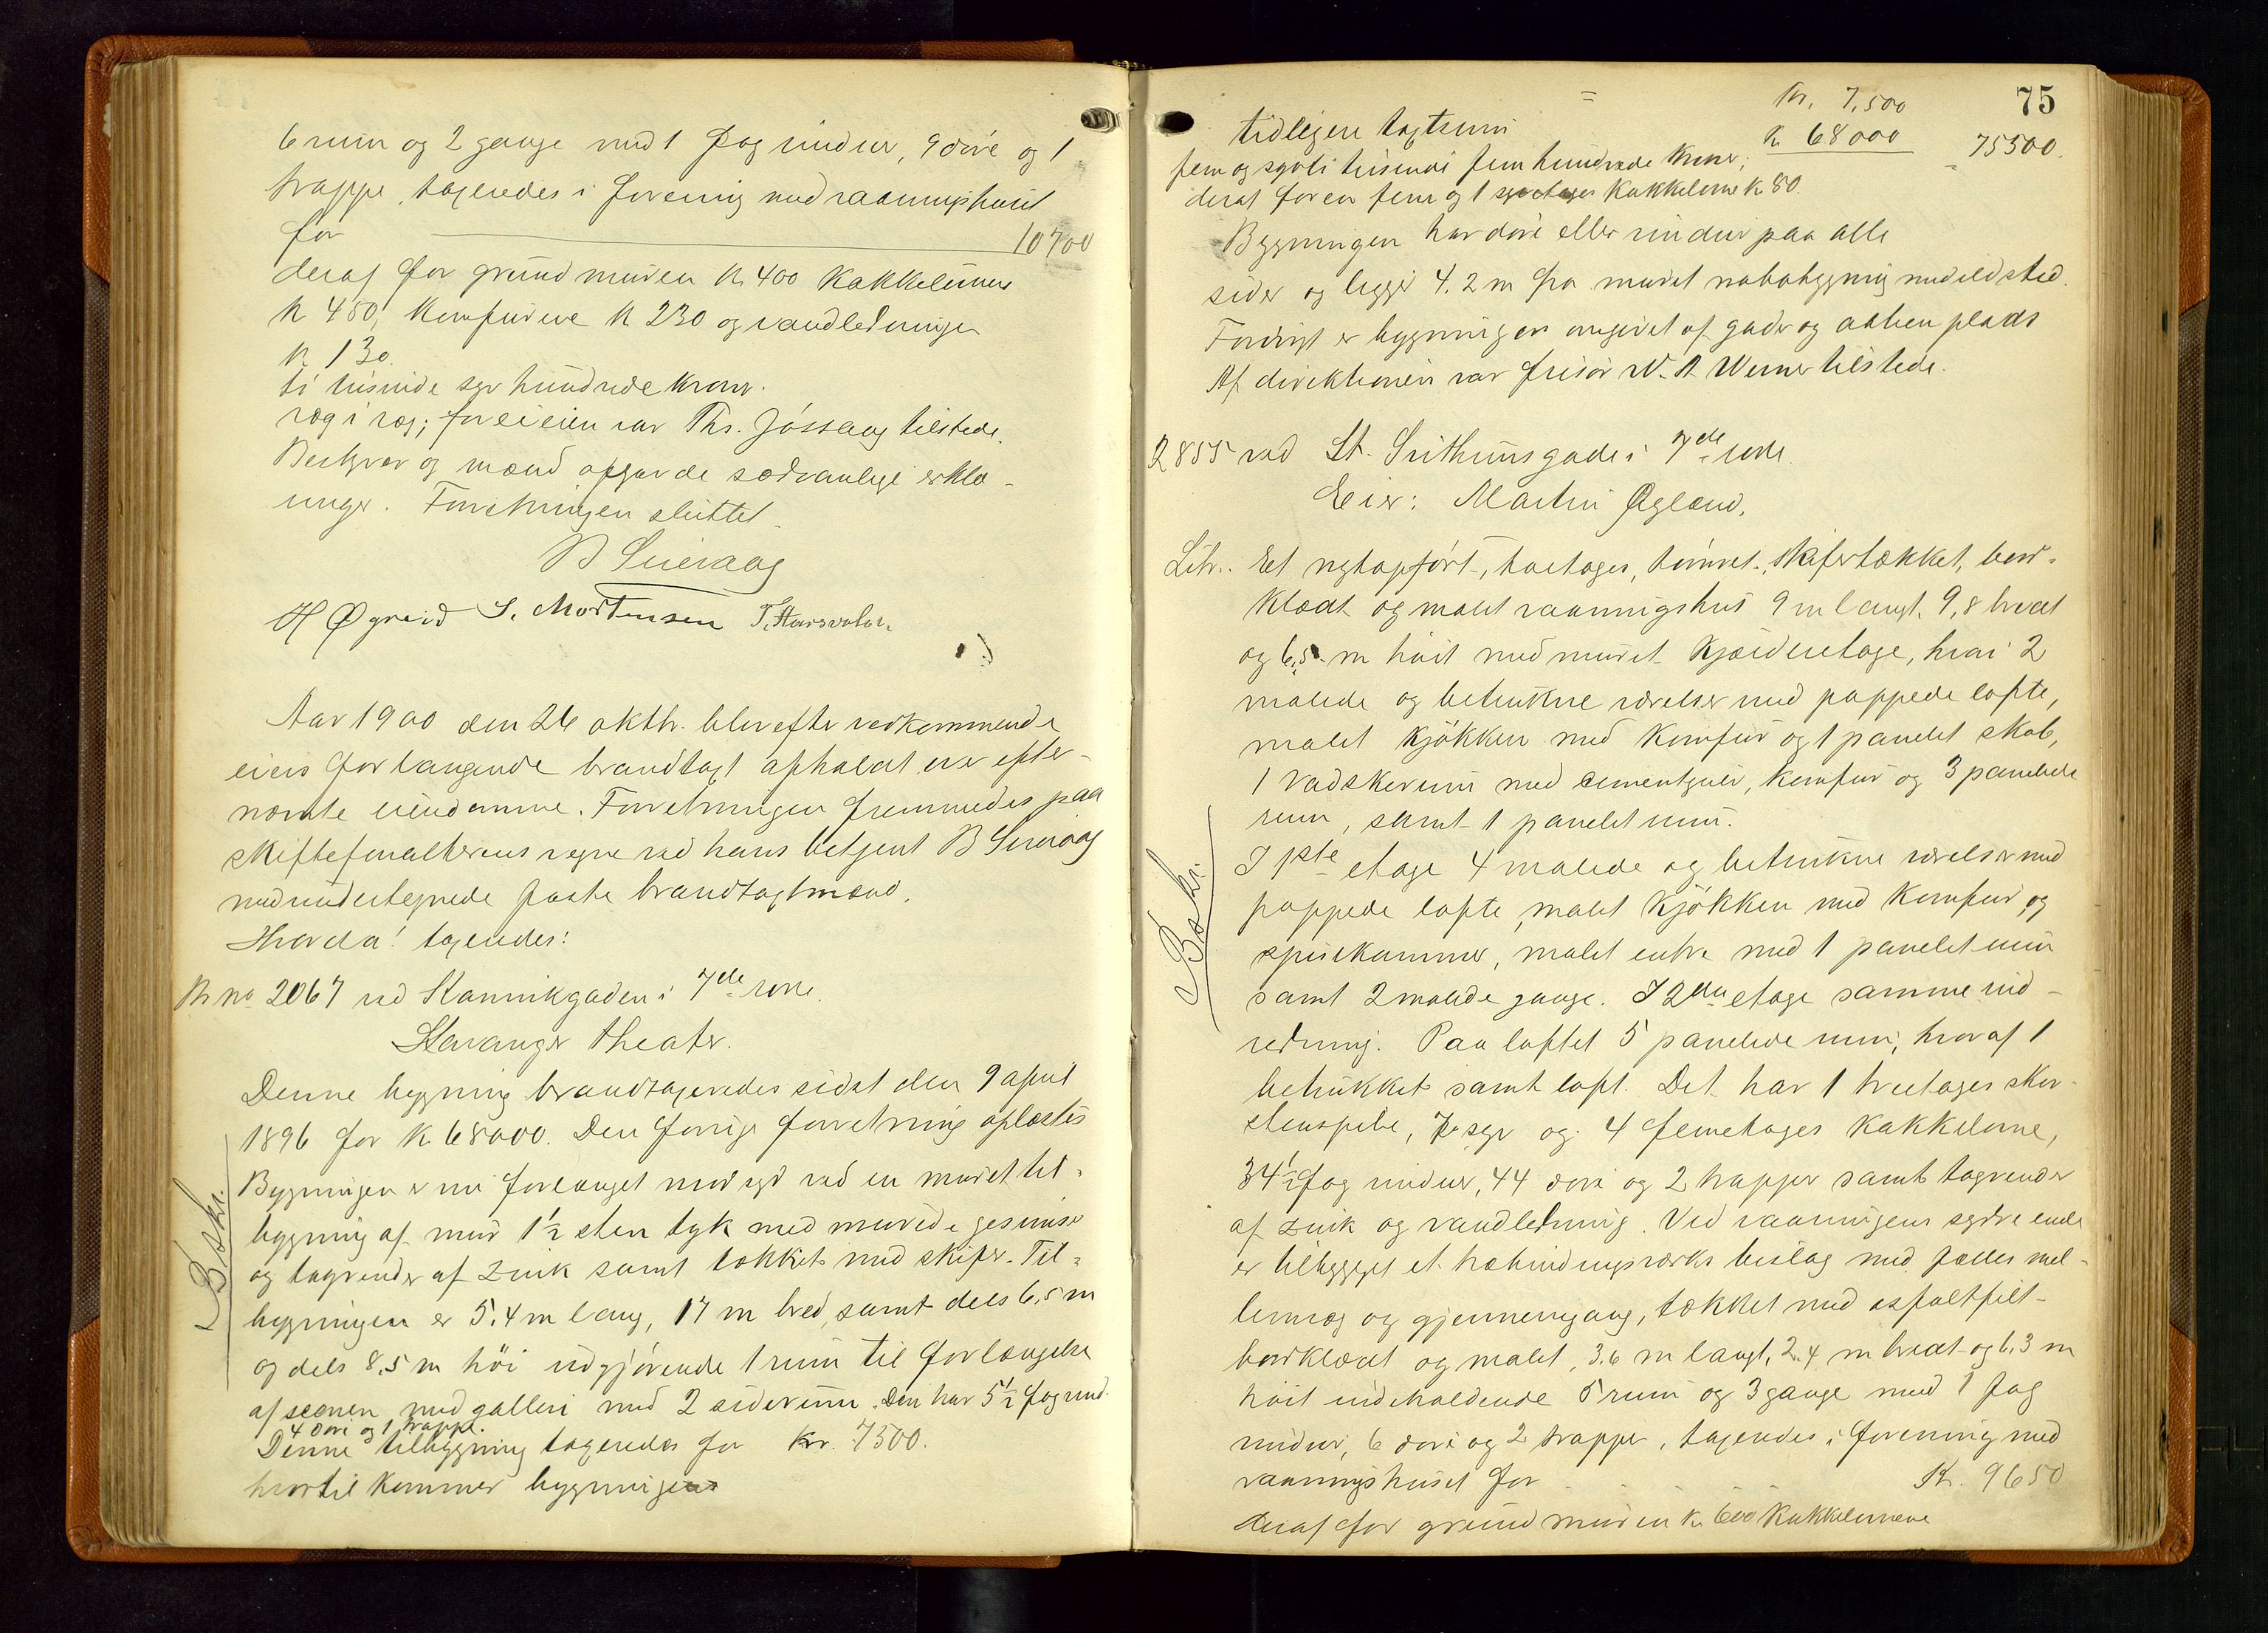 6 rum og 2 gange med 1 fag vinduer, 9 döre og 1
trappe, taxeredes i forening med vaaningshuset
for 10700
deraf for grundmuren Kr 400 Kakkelovnene
Kr 450, Komfurene Kr 230 og vandledningen
Kr 130.
ti tusinde syv hundrede kroner.
væg i væg; for eieren var Ths. Jössang tilstede.
Bestyrer og mænd afgav de sædvanlige erklæ-
ringer. Forretningen sluttet.
B Sueraag
H Øgreid S. Mortensen T. Harsvolen
Aar 1900 den 26 oktbr. blev efter vedkommende
eiers forlangende brandtaxt afholdt over efter-
nævnte eiendomme. Forretningen fremmedes paa
skifteforvalterens vegne ved hans betjent B Sueraag
med undertegnede faste brandtaxtmænd.
Hvorda! taxeredes:
Br no 2067 ved Kannikgaden i 7de rode.
Stavanger Theater.
Denne bygning brandtaxeredes sidst den 9 april
1896 for Kr 68000. Den forrige forretning oplæstes
Beskr.
Bygningen er nu forlænget mod syd ved en muret til-
bygning af mur 1½ sten tyk med murede gesimser
og tagrender af zink samt tækket med skifer. Til-
bygningen er 5.4 m lang, 17 m bred, samt dels 6,5 m
og dels 8.5 m höi udgjörende 1 rum til forlængelse
af scenen med galleri med 2 siderum. Den har 5½ fag vind.
4 döre og 1 trappe.
Denne tilbygning taxeredes for Kr. 7500.
hvortil kommer bygningens
75
Kr. 7,500
tidligere taxtsum Kr 68000 75500.
fem og sytti tusinde fem hundrede kroner;
deraf for en fem og 1 Kakkelovne Kr 80.
Bygningen har döre eller vinduer paa alle
sider og ligger 4.2 m fra muret nabobygning med ildsted.
Forövrigt er bygningen omgivet af gader og aaben plads
Af direktionen var frisör W. A Werner tilstede.
2855 ved St. Svithunsgade i 7de rode
Eier: Martin Øgland.
Litr. Et nyopfört, toetages, tömret, skifertækket, bord-
klædt og malet vaaningshus 9 m langt, 9,8 bredt
og 6,5 m höit med muret Kjælderetage, hvori 2
malede og betrukne værelser med pappede lofte,
malet kjökken med Komfur og 1 panelet skab,
1 vadskerum med cementgulv, komfur og 3 panelede
rum, samt 1 panelet rum.
Beskr.
I 1ste etage 4 malede og betrukne værelser med
pappede lofte, malet kjökken med Komfur og
spisekammer, malet entre med 1 panelet rum
samt 2 malede gange. I 2den etage samme ind-
redning. Paa loftet 5 panelede rum, hvoraf 1
betrukket samt loft. Det har 1 treetages skor-
stenspibe, 7 syv og 4 femetages Kakkelovne,
34½ fag vinduer, 44 döre og 2 trapper samt tagrender
af zink og vandledning. Ved vaaningens syvdre ende
er tilbygget et træbindingsværks bislag med fælles mel-
lemvæg og gjennemgang, tækket med asfaltfilt
bordklædt og malet, 3.6 m langt, 2.4 m bredt og 6.3 m
höit indeholdende 5 rum og 3 gange med 1 fag
vinduer, 6 döre og 2 trapper, taxeredes i forening med
vaaningshuset for Kr. 9650
deraf for grundmuren Kr 600 Kakkelovnene